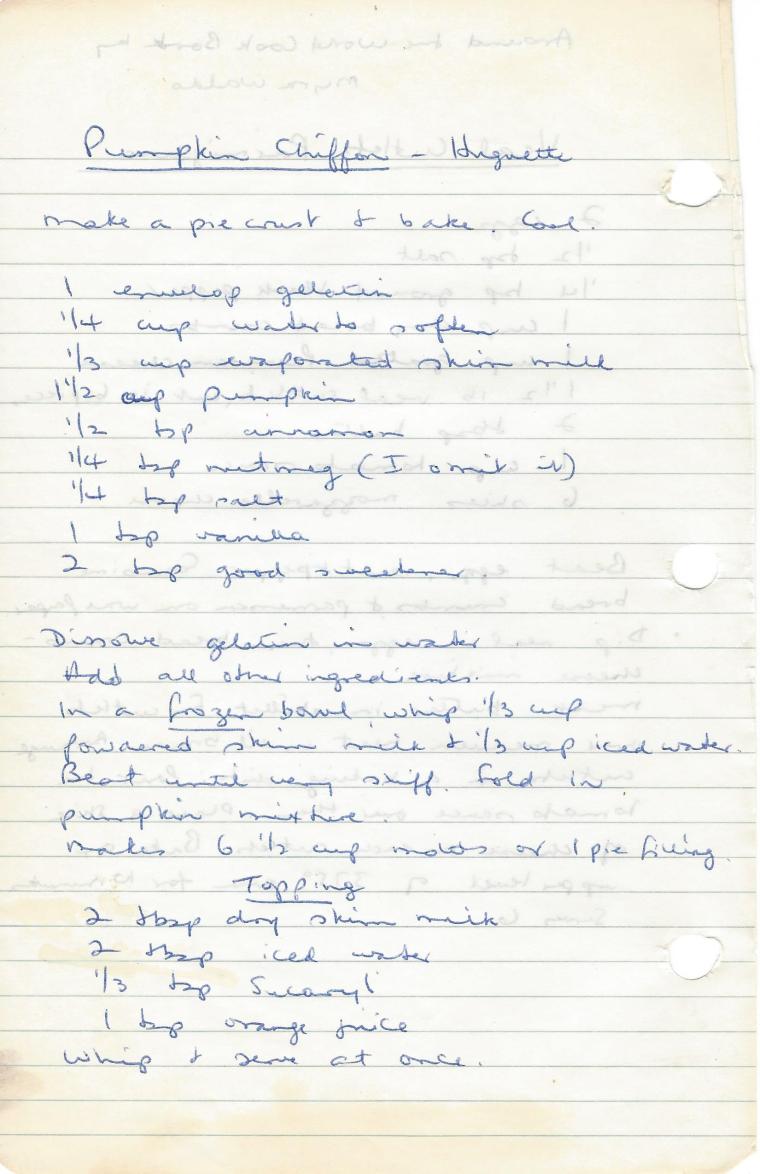 Pumpkin Chiffon - Huguette
Make a pie crust & bake. Cool.
1 envelop gelatin
1/4 cup water to soften
1/3 cup evaporated skim milk
1 1/2 cup pumpkin
1/2 tsp cinnamon
1/4 tsp nutmeg (I omit it)
1/4 tsp salt
1 tsp vanilla
2 tsp good sweetener.
Dissolve gelatin in water
Add all other ingredients.
In a frozen bowl, whip 1/3 cup
powdered skim milk & 1/3 cup iced water.
Beat until very stiff. Fold in
pumpkin mixture.
Makes 6 1/2 cup molds or 1 pie filling.
Topping
2 tbsp dry skim milk
2 tbsp iced water
1/3 tsp Sucaryl
1 tsp orange juice
Whip & serve at once.